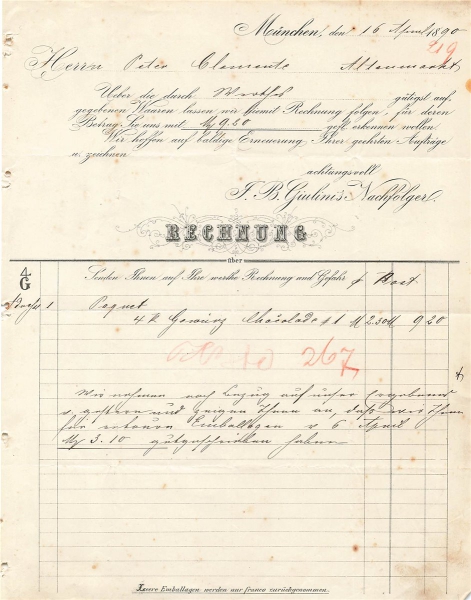 München, den 16 April 1890
419
Herrn Peter Clemente Altenmarkt
Ueber die durch Werthes gütigst auf-
gegebenen Waaren lassen wir hiemit Rechnung folgen, für deren
Betrag Sie uns mit M 9.20 gefl. erkennen wollen
Wir hoffen auf baldige Erneuerung Ihrer geehrten Aufträge
u. zeichnen
achtungsvoll
J. B. Giulini's Nachfolger
RECHNUNG
über
4/G
Senden Ihnen auf Ihre werthe Rechnung und Gefahr p Post
1 Paquet
4 K Gewürz Chocolade à M 2.30 M 9 20
267
Wir nehmen noch Bezug auf unser Ergebenes
v. gestern und zeigen Ihnen an, daß wir Ihnen
für Emballagen v 6 April
M 3.10 gutgeschrieben haben
Leere Emballagen werden nur franco zurückgenommen.